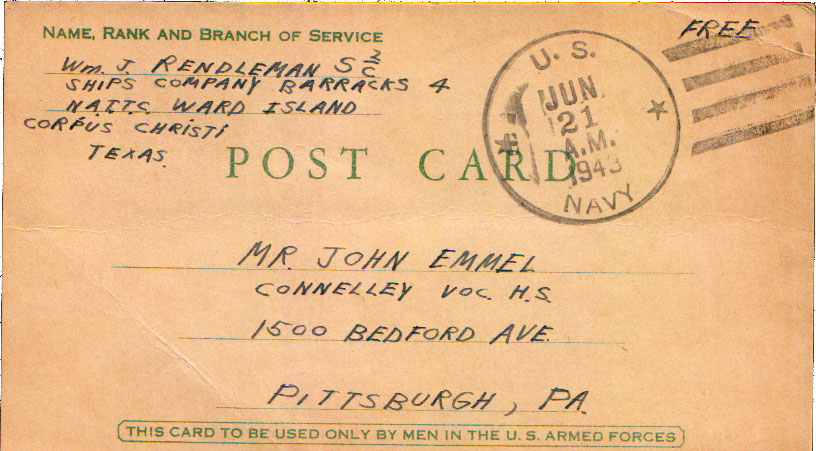 NAME, RANK AND BRANCH OF SERVICE
FREE
Wm. J. RENDLEMAN S 2/C
SHIPS COMPANY BARRACKS 4
N.A.T.T.C. WARD ISLAND
CORPUS CHRISTI
TEXAS.
U. S.
JUN
21
A.M.
1943
NAVY
POST CARD
MR. JOHN EMMEL
CONNELLEY VOC. H.S.
1500 BEDFORD AVE.
PITTSBURGH, PA.
THIS CARD TO BE USED ONLY BY MEN IN THE U.S. ARMED FORCES